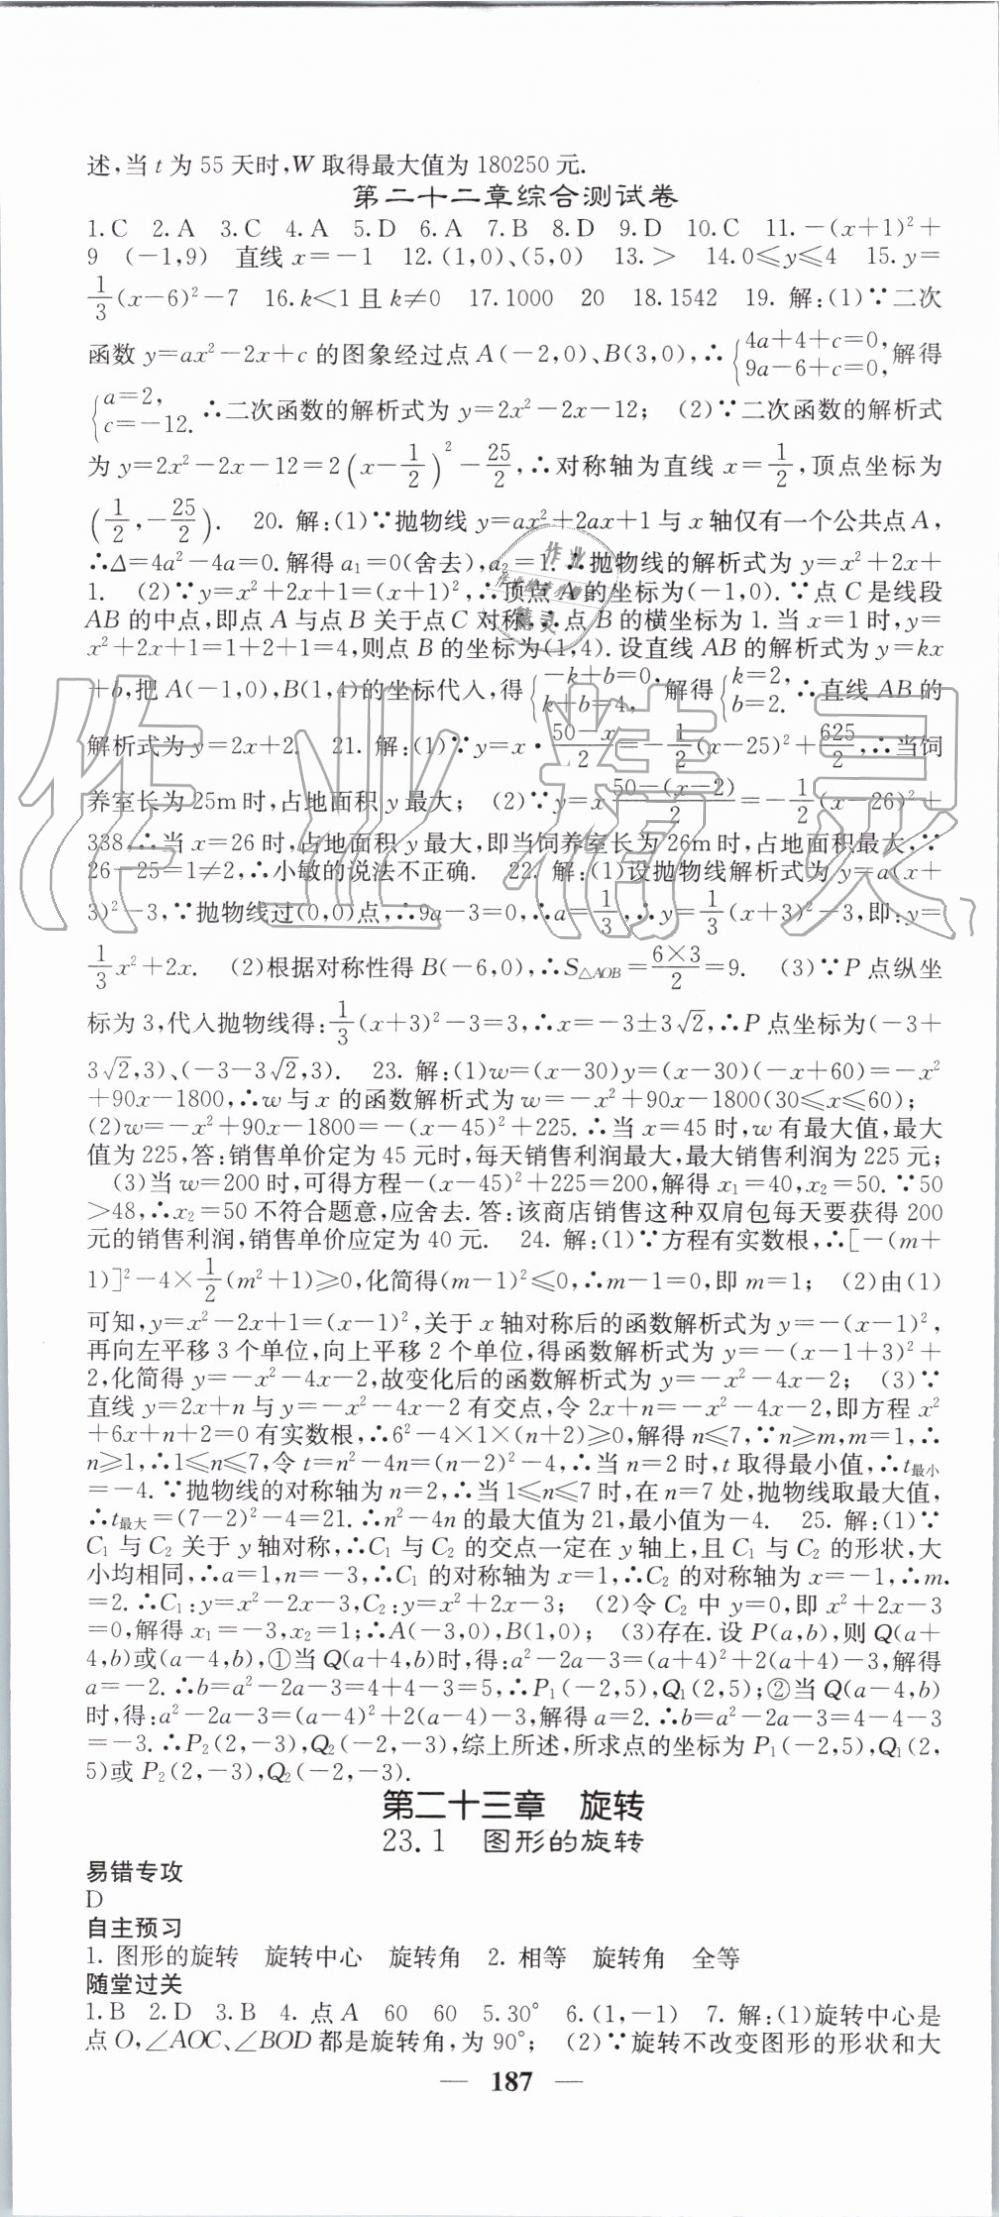 述,当 t 为 55 天时,W 取得最大值为 180250 元.
第二十二章综合测试卷
1.C 2.A 3.C 4.A 5.D 6.A 7.B 8.D 9.D 10.C 11.-(x+1)²+
9 (-1,9) 直线 x=-1 12.(1,0)、(5,0) 13.> 14.0≤y≤4 15.y=
1/3(x-6)²-7 16.k<1 且 k≠0 17.1000 20 18.1542 19. 解:(1)∵二次
函数 y=ax²-2x+c 的图象经过点 A(-2,0)、B(3,0),∴{4a+4+c=0, 9a-6+c=0,解得
{a=2, c=-12. ∴二次函数的解析式为 y=2x²-2x-12; (2)∵二次函数的解析式
为 y=2x²-2x-12=2(x-1/2)²-25/2,∴对称轴为直线 x=1/2,顶点坐标为
(1/2,-25/2). 20. 解:(1)∵抛物线 y=ax²+2ax+1 与 x 轴仅有一个公共点 A,
∴Δ=4a²-4a=0.解得 a₁=0(舍去),a₂=1.∴抛物线的解析式为 y=x²+2x+
1. (2)∵y=x²+2x+1=(x+1)²,∴顶点 A 的坐标为(-1,0).∵点 C 是线段
AB 的中点,即点 A 与点 B 关于点 C 对称,∴点 B 的横坐标为 1.当 x=1 时,y=
x²+2x+1=1+2+1=4,则点 B 的坐标为(1,4).设直线 AB 的解析式为 y=kx
+b,把 A(-1,0),B(1,4)的坐标代入,得{-k+b=0, k+b=4, 解得{k=2, b=2. ∴直线 AB 的
解析式为 y=2x+2. 21. 解:(1)∵y=x·(50-x)/2=-1/2(x-25)²+625/2,∴当饲
养室长为 25m 时,占地面积 y 最大; (2)∵y=x (50-(x-2))/2=-1/2(x-26)²+
338,∴当 x=26 时,占地面积 y 最大,即当饲养室长为 26m 时,占地面积最大,∵
26-25=1≠2,∴小敏的说法不正确. 22. 解:(1)设抛物线解析式为 y=a(x+
3)²-3,∵抛物线过(0,0)点,∴9a-3=0,∴a=1/3,∴y=1/3(x+3)²-3,即:y=
1/3x²+2x. (2)根据对称性得 B(-6,0),∴S△AOB=6×3/2=9. (3)∵P 点纵坐
标为 3,代入抛物线得:1/3(x+3)²-3=3,∴x=-3±3√2,∴P 点坐标为(-3+
3√2,3)、(-3-3√2,3). 23. 解:(1)w=(x-30)y=(x-30)(-x+60)=-x²
+90x-1800,∴w 与 x 的函数解析式为 w=-x²+90x-1800(30≤x≤60);
(2)w=-x²+90x-1800=-(x-45)²+225.∴当 x=45 时,w 有最大值,最大
值为 225,答:销售单价定为 45 元时,每天销售利润最大,最大销售利润为 225 元;
(3)当 w=200 时,可得方程-(x-45)²+225=200,解得 x₁=40,x₂=50.∵50
>48,∴x₂=50 不符合题意,应舍去.答:该商店销售这种双肩包每天要获得 200
元的销售利润,销售单价应定为 40 元. 24. 解:(1)∵方程有实数根,∴[-(m+
1)]²-4×1/2(m²+1)≥0,化简得(m-1)²≤0,∴m-1=0,即 m=1; (2)由(1)
可知,y=x²-2x+1=(x-1)²,关于 x 轴对称后的函数解析式为 y=-(x-1)²,
再向左平移 3 个单位,向上平移 2 个单位,得函数解析式为 y=-(x-1+3)²+
2,化简得 y=-x²-4x-2,故变化后的函数解析式为 y=-x²-4x-2; (3)∵
直线 y=2x+n 与 y=-x²-4x-2 有交点,令 2x+n=-x²-4x-2,即方程 x²
+6x+n+2=0 有实数根,∴6²-4×1×(n+2)≥0,解得 n≤7,∵n≥m,m=1,∴
n≥1,∴1≤n≤7,令 t=n²-4n=(n-2)²-4,∴当 n=2 时,t 取得最小值,∴t最小
=-4.∵抛物线的对称轴为 n=2,∴当 1≤n≤7 时,在 n=7 处,抛物线取最大值,
∴t最大=(7-2)²-4=21.∴n²-4n 的最大值为 21,最小值为-4. 25. 解:(1)∵
C₁ 与 C₂ 关于 y 轴对称,∴C₁ 与 C₂ 的交点一定在 y 轴上,且 C₁ 与 C₂ 的形状,大
小均相同,∴a=1,n=-3,∴C₁ 的对称轴为 x=1,∴C₂ 的对称轴为 x=-1,∴m
=2.∴C₁:y=x²-2x-3,C₂:y=x²+2x-3; (2)令 C₂ 中 y=0,即 x²+2x-3
=0,解得 x₁=-3,x₂=1;∴A(-3,0),B(1,0); (3)存在.设 P(a,b),则 Q(a+
4,b)或(a-4,b),①当 Q(a+4,b)时,得:a²-2a-3=(a+4)²+2(a+4)-3,解得
a=-2.∴b=a²-2a-3=4+4-3=5,∴P₁(-2,5),Q₁(2,5);②当 Q(a-4,b)
时,得:a²-2a-3=(a-4)²+2(a-4)-3,解得 a=2.∴b=a²-2a-3=4-4-3
=-3.∴P₂(2,-3),Q₂(-2,-3),综上所述,所求点的坐标为 P₁(-2,5),Q₁(2,
5)或 P₂(2,-3),Q₂(-2,-3).
第二十三章 旋转
23.1 图形的旋转
易错专攻
D
自主预习
1. 图形的旋转 旋转中心 旋转角 2. 相等 旋转角 全等
随堂过关
1.B 2.D 3.B 4. 点 A 60 60 5.30° 6.(1,-1) 7. 解:(1)旋转中心是
点 O,∠AOC、∠BOD 都是旋转角,为 90°; (2)∵旋转不改变图形的形状和大
— 187 —
作业精灵